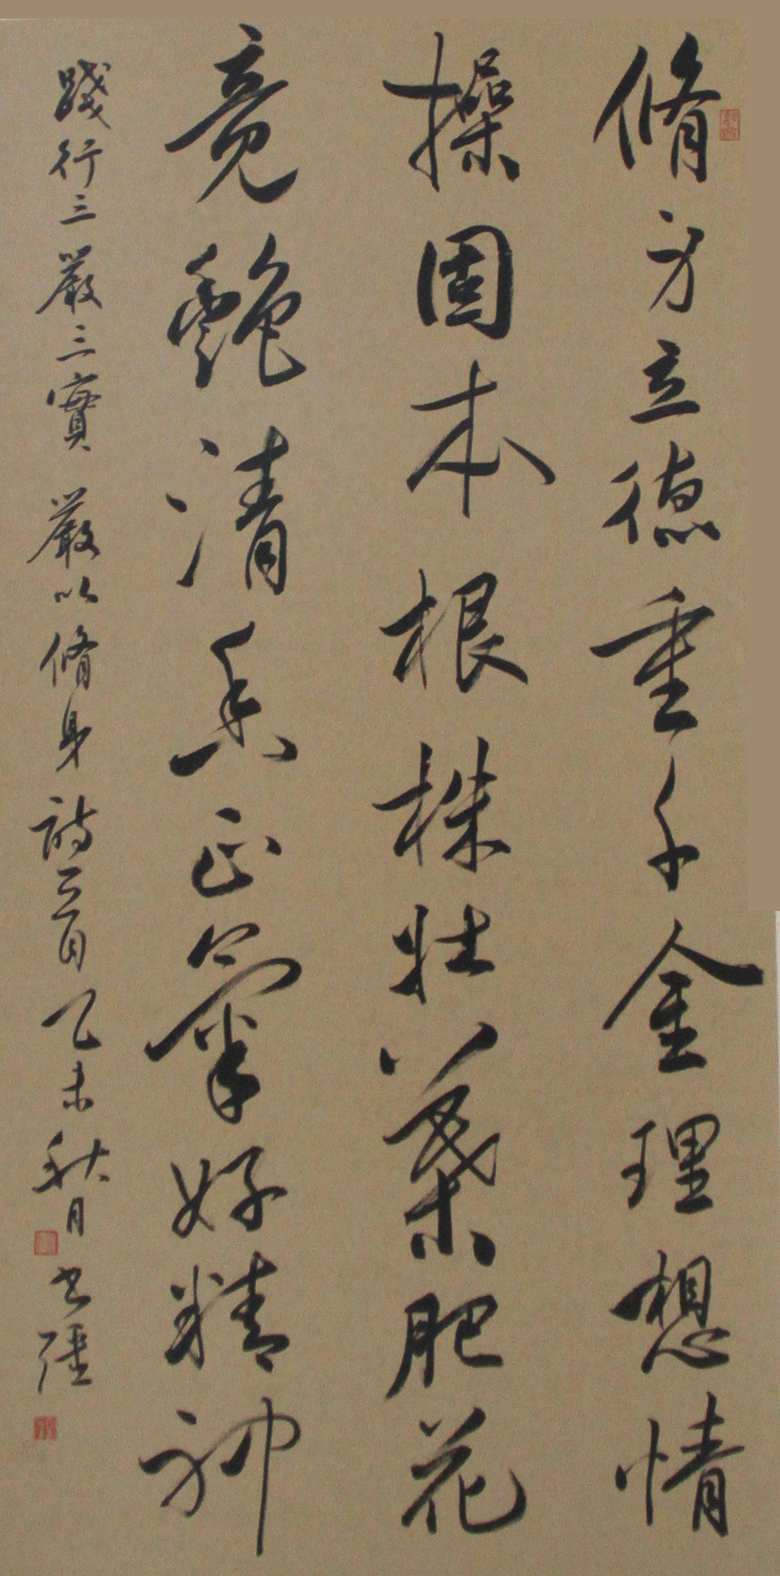 脩身立德重千金理想情
操固本根株壯葉肥花
竟艷清香正氣好精神
踐行三嚴三實 嚴以脩身詩一首 乙未秋月